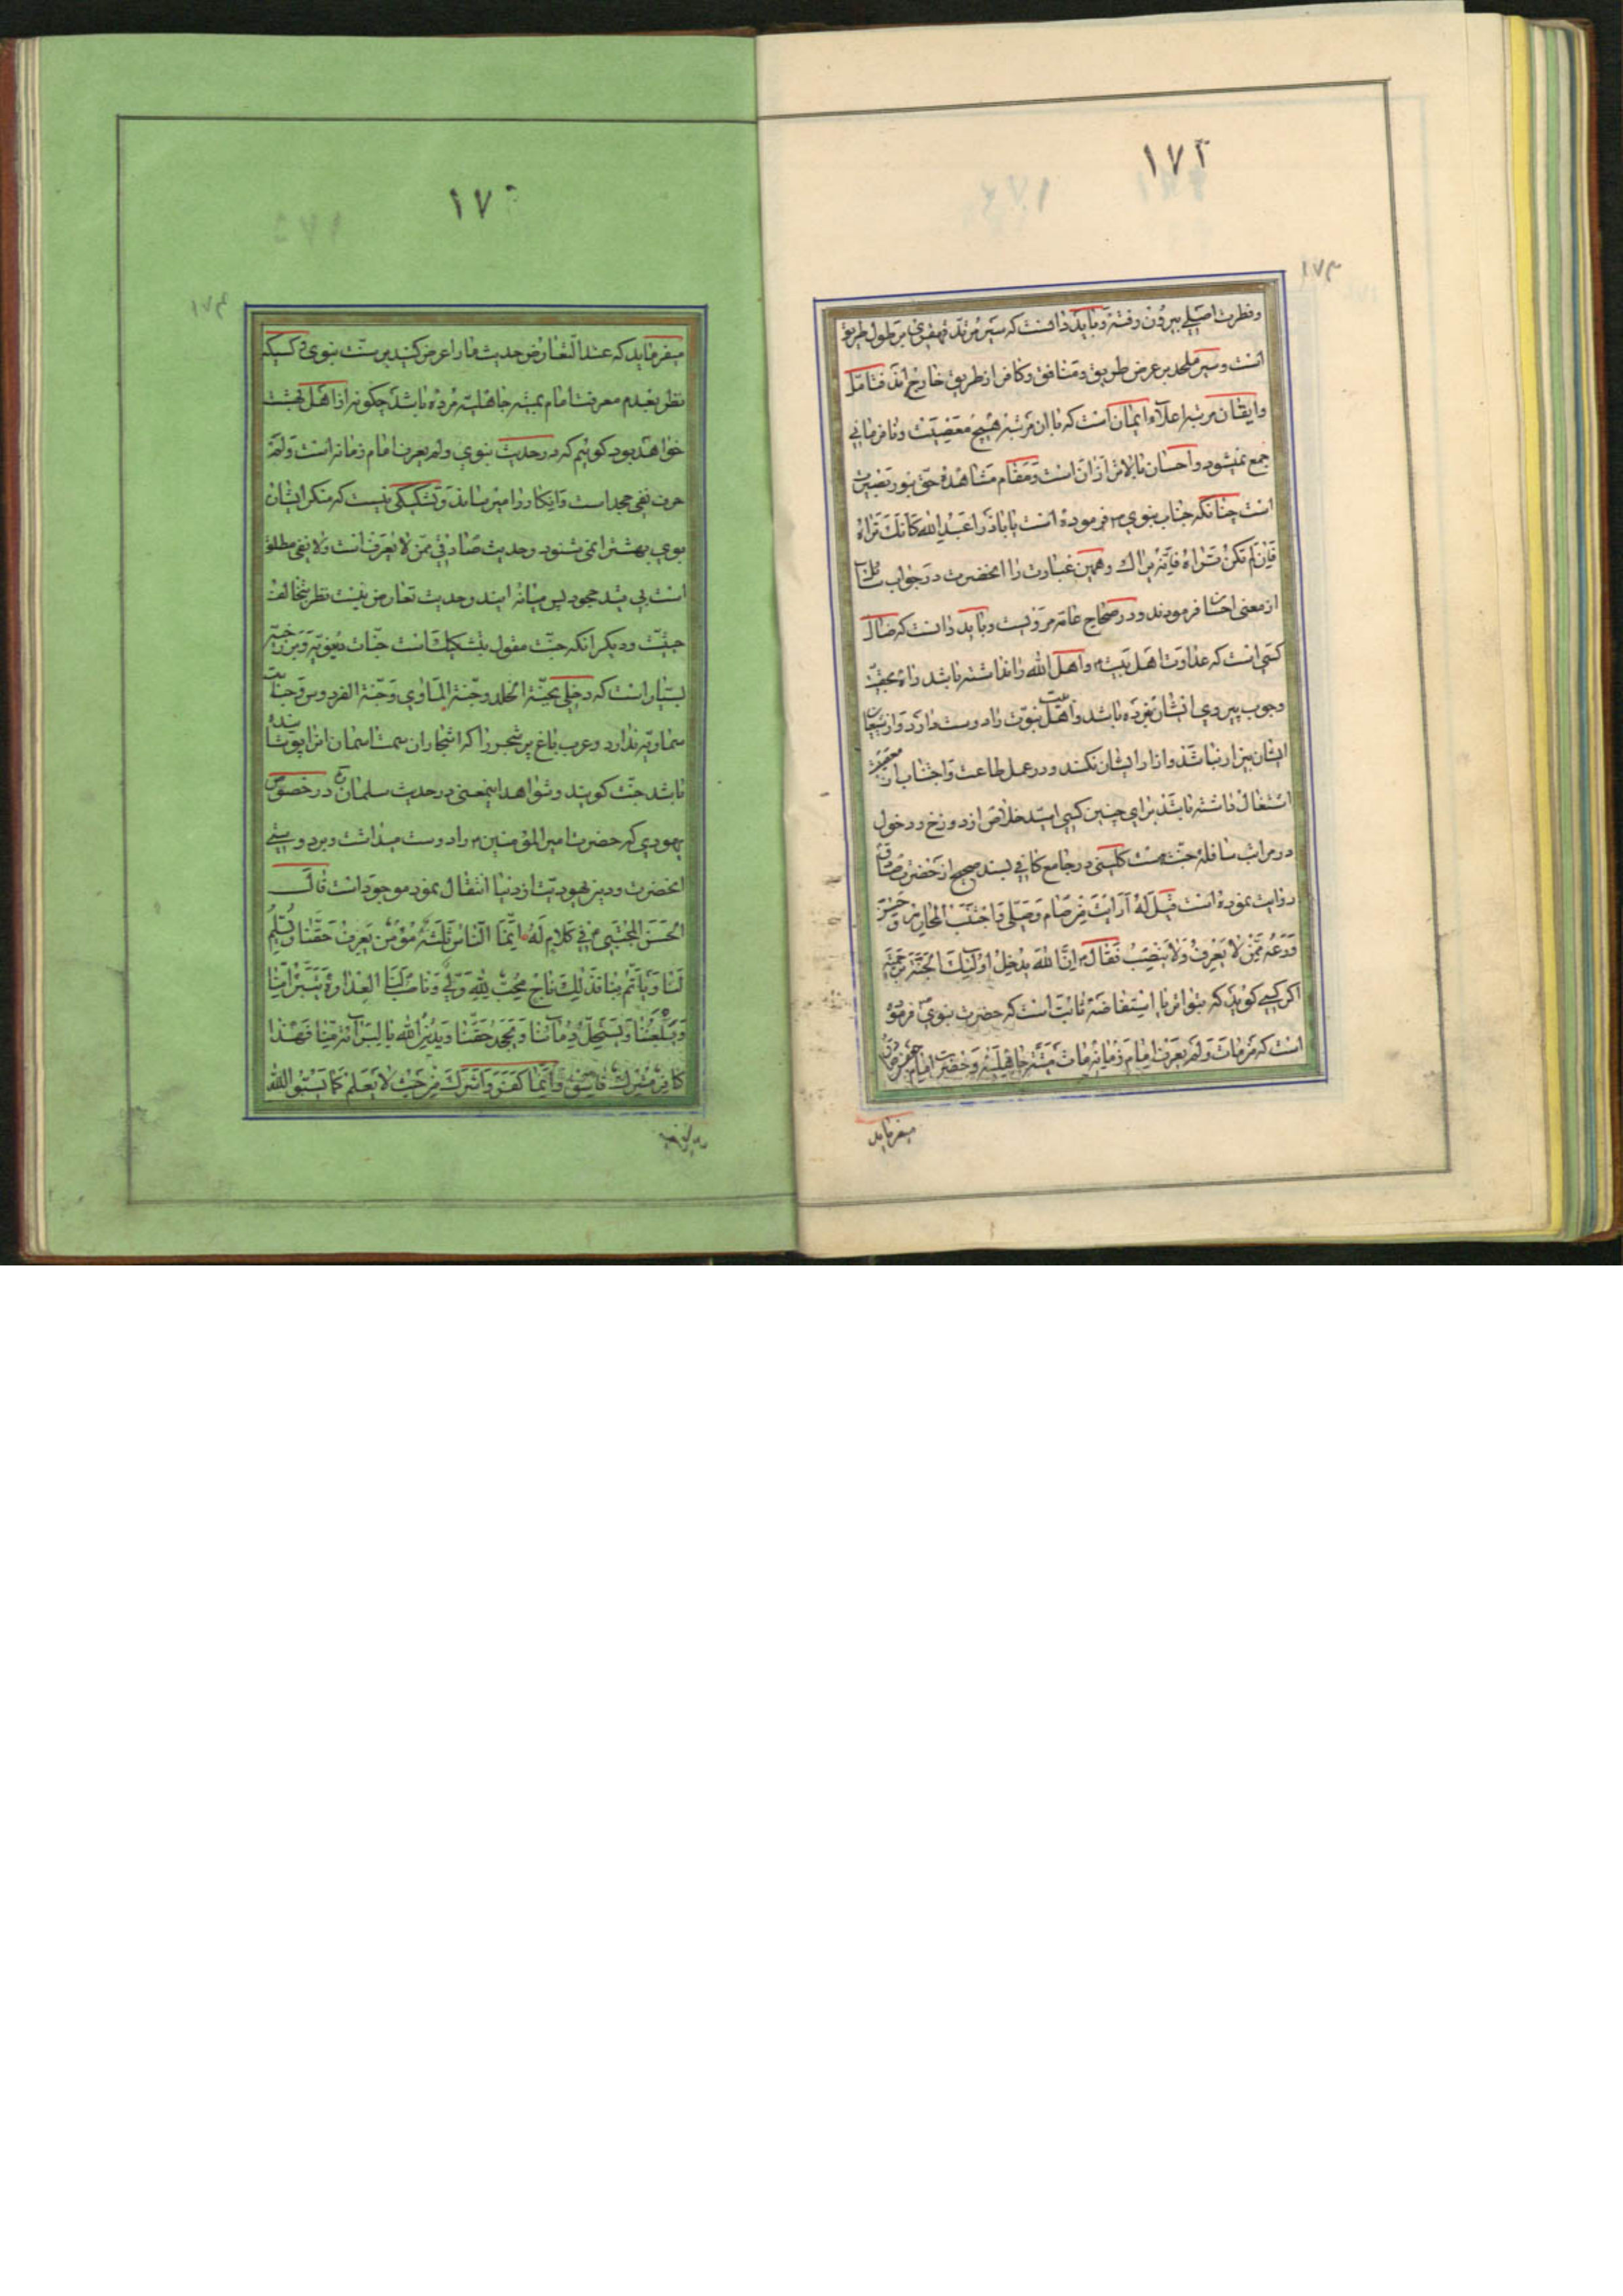 ۱۷۲
و فطرت اصلی بیرون رفته و باید دانست که سیر مرتد قهقری بر طول طریق
است و سیر ملحد بر عرض طریق و منافق و کافر از طریق خارج اند فتامّل
و ایقان مرتبه اعلاء ایمان است که با ان مرتبه هیچ معصیت و نافرمانی
جمع نمیشود و احسان بالاتر از ان است و مقام مشاهده حق بنور بصیرت
است چنانکه جناب نبوی فرموده است یا باذر اعبد الله کانّک تراه
فان لم تکن تراه فانّه یراک و همین عبارت را انحضرت در جواب سائل
از معنی احسان فرمودند و در صحاح عامّه مرویست و باید دانست که ضالّ
کسی است که عداوت اهل بیت و اهل الله را نداشته باشد راه بحقیت
وجوب پیروی ایشان نبرده باشد و اهل بیت نبوّت را دوست دارد و از شیعیان
ایشان بیزار نباشد و ازار ایشان نکند و در عمل طاعت و اجتناب از معصیت
اشتغال داشته باشد برای چنین کسی امید خلاص از دوزخ و دخول
در مراتب سافلهٔ جنّت هست کلینی در جامع کافی بسند صحیح از حضرت صادق
روایت نموده است قیل له ارایت من صام و صلّی و اجتنب المحارم و حسن
ورعه ممّن لا یعرف و لا ینصب فقال انّ الله یدخل اولئک الجنّة برحمته
اکر کسی کوید که بتواتر یا استفاضه ثابت است که حضرت نبوی فرموده
است که من مات و لم یعرف امام زمانه مات میتة جاهلیّة و حضرت امام جعفر صادق
میفرماید
۱۷
۱۷۳
میفرماید که عند التّعارض حدیث ما را عرض کنید بر سنّت نبوی کسیکه
نظر بعدم معرفت امام بمیته جاهلیّه مرده باشد چکونه از اهل جنّت
خواهد بود کوئیم که در حدیث نبوی و لم یعرف امام زمانه است و لم
حرف نفی جحد است و انکار را میرساند و تشکیکی نیست که منکر ایشان
بوی بهشت را نمی شنود و حدیث صادقی ممّن لا یعرف است و لا نفی مطلق
است بی قید جحود پس میانه ایند و حدیث تعارض نیست نظر بتخالف
حیثیّت و دیکر انکه جنّت مقول بتشکیک است جنّات دنیویّه و برزخیّه
بسیار است که دخلی بجنّة الخلد و جنّة الماوی و جنّة الفردوس و جنّات
سماویّه ندارد و عرب باغ پر شجر را که اشجار ان سمت اسمان انرا پوشانیده
باشد جنّت کویند و شواهد اینمعنی در حدیث سلمان در خصوص
یهودی که حضرت امیر المؤمنین را دوست میداشت و بر دوستی
انحضرت و دین یهودیّت از دنیا انتقال نمود موجود است قال
الحسن المجتبی فی کلام له انّما النّاس ثلثة مؤمن یعرف حقّنا و یسلّم
لنا و یاتمّ بنا فذلک ناج محبّ لله ولیّ و ناصب لنا العداوة یتبرّأ منّا
و یلعننا و یستحلّ دمائنا و یجحد حقّنا و یدین الله بالبرائة منّا فهذا
کافر مشرک فاسق و انّما کفر و اشرک من حیث لا یعلم کما یسبّوا الله